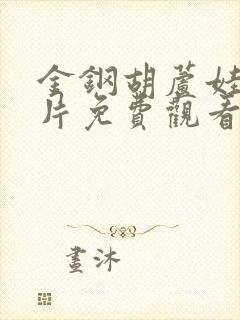 金鋼胡蘆娃
片免費觀看
畫沐